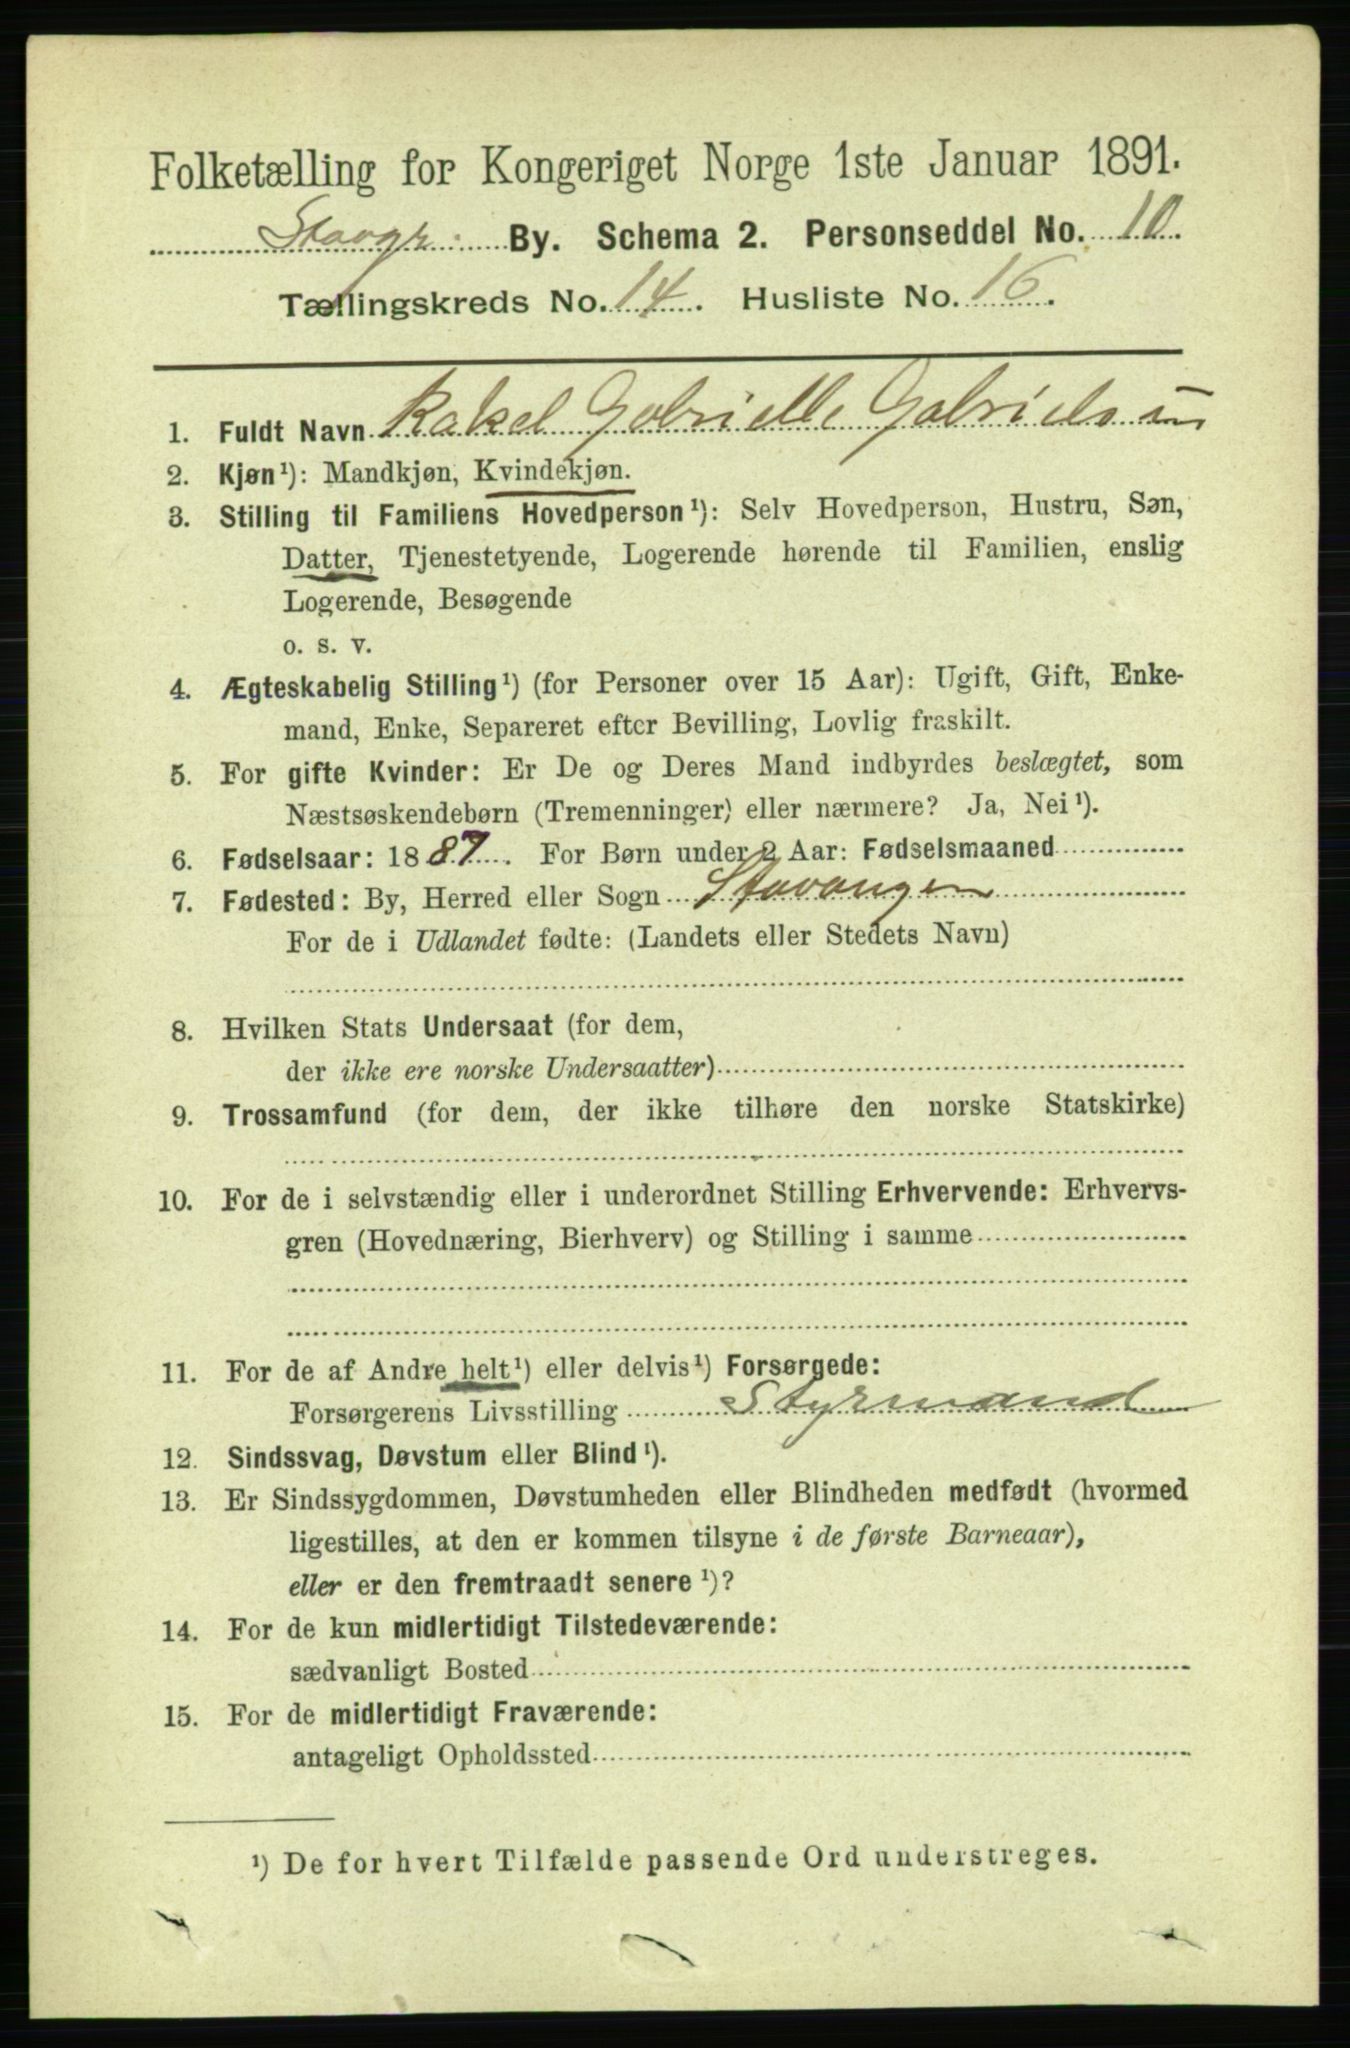 Folketælling for Kongeriget Norge 1ste Januar 1891.
Stavgr. By. Schema 2. Personseddel No. 10.
Tællingskreds No. 14. Husliste No. 16.
1. Fuldt Navn Rakel Gabrielle Gabrielsen
2. Kjøn¹): Mandkjøn, Kvindekjøn.
3. Stilling til Familiens Hovedperson¹): Selv Hovedperson, Hustru, Søn,
Datter, Tjenestetyende, Logerende hørende til Familien, enslig
Logerende, Besøgende
o. s. v.
4. Ægteskabelig Stilling¹) (for Personer over 15 Aar): Ugift, Gift, Enke-
mand, Enke, Separeret efter Bevilling, Lovlig fraskilt.
5. For gifte Kvinder: Er De og Deres Mand indbyrdes beslægtet, som
Næstsøskendebørn (Tremenninger) eller nærmere? Ja, Nei¹).
6. Fødselsaar: 1887. For Børn under 2 Aar: Fødselsmaaned
7. Fødested: By, Herred eller Sogn Stavanger
For de i Udlandet fødte: (Landets eller Stedets Navn)
8. Hvilken Stats Undersaat (for dem,
der ikke ere norske Undersaatter)
9. Trossamfund (for dem, der ikke tilhøre den norske Statskirke)
10. For de i selvstændig eller i underordnet Stilling Erhvervende: Erhvervs-
gren (Hovednæring, Bierhverv) og Stilling i samme
11. For de af Andre helt¹) eller delvis¹) Forsørgede:
Forsørgerens Livsstilling Styrmand
12. Sindssvag, Døvstum eller Blind¹).
13. Er Sindssygdommen, Døvstumheden eller Blindheden medfødt (hvormed
ligestilles, at den er kommen tilsyne i de første Barneaar),
eller er den fremtraadt senere¹)?
14. For de kun midlertidigt Tilstedeværende:
sædvanligt Bosted
15. For de midlertidigt Fraværende:
antageligt Opholdssted
¹) De for hvert Tilfælde passende Ord understreges.